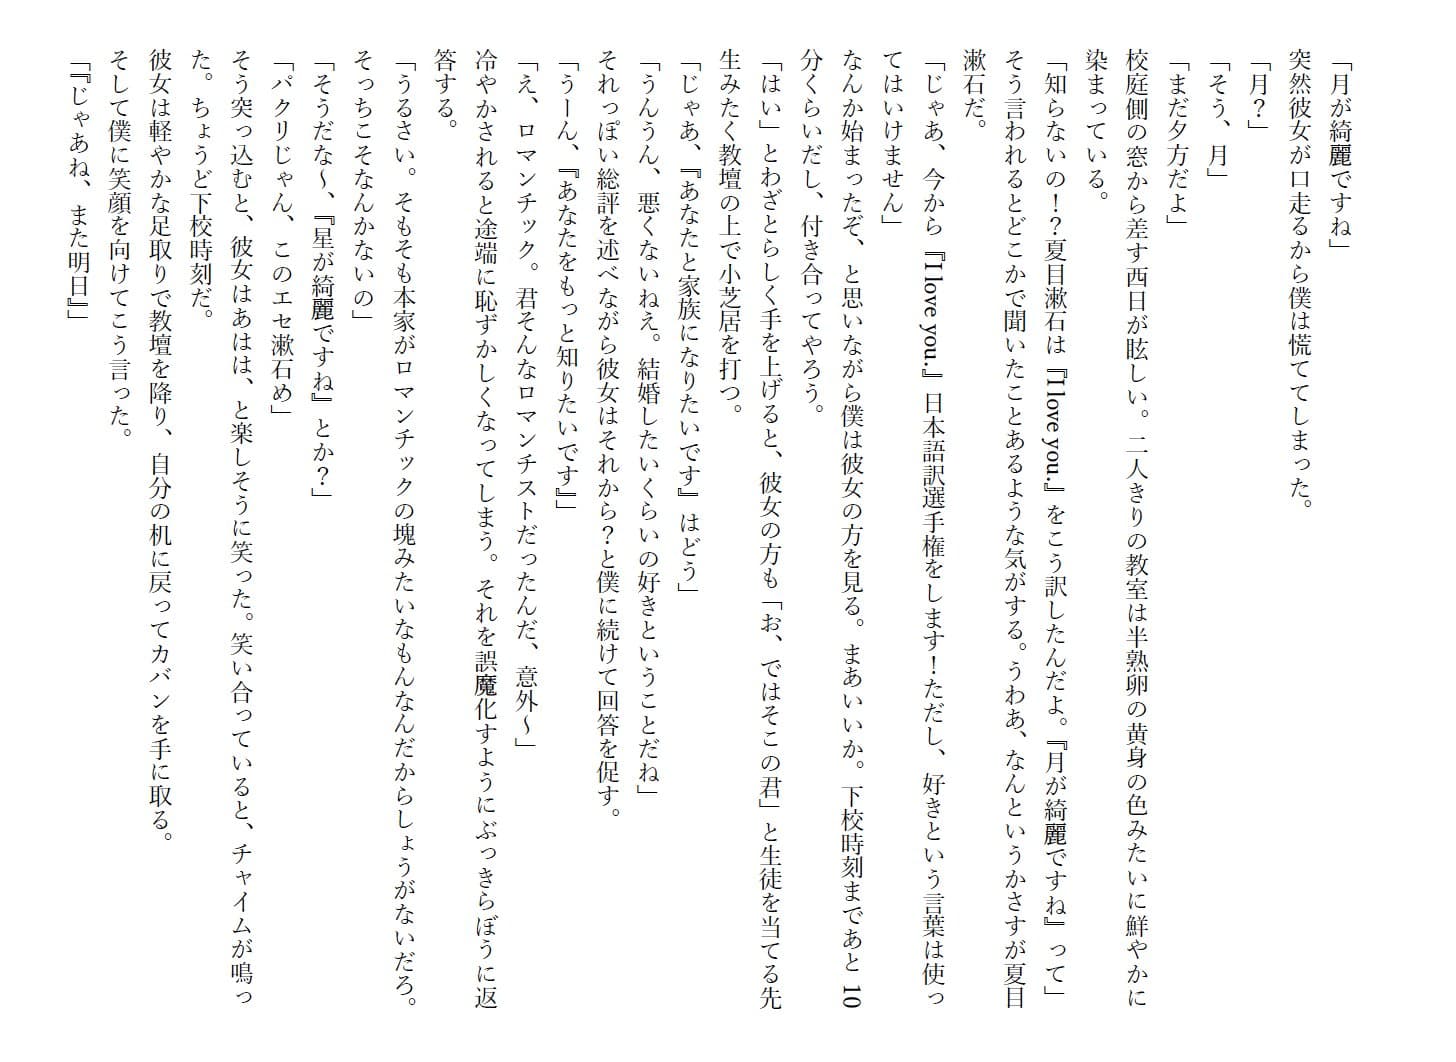 「月が綺麗ですね」
突然彼女が口走るから僕は慌ててしまった。
「月？」
「そう、月」
「まだ夕方だよ」
校庭側の窓から差す西日が眩しい。二人きりの教室は半熟卵の黄身の色みたいに鮮やかに
染まっている。
「知らないの！？夏目漱石は『I love you.』をこう訳したんだよ。『月が綺麗ですね』って」
そう言われるとどこかで聞いたことあるような気がする。うわあ、なんというかさすが夏目
漱石だ。
「じゃあ、今から『I love you.』日本語訳選手権をします！ただし、好きという言葉は使っ
てはいけません」
なんか始まったぞ、と思いながら僕は彼女の方を見る。まあいいか。下校時刻まであと 10
分くらいだし、付き合ってやろう。
「はい」とわざとらしく手を上げると、彼女の方も「お、ではそこの君」と生徒を当てる先
生みたく教壇の上で小芝居を打つ。
「じゃあ、『あなたと家族になりたいです』はどう」
「うんうん、悪くないねえ。結婚したいくらいの好きということだね」
それっぽい総評を述べながら彼女はそれから？と僕に続けて回答を促す。
「うーん、『あなたをもっと知りたいです』」
「え、ロマンチック。君そんなロマンチストだったんだ、意外～」
冷やかされると途端に恥ずかしくなってしまう。それを誤魔化すようにぶっきらぼうに返
答する。
「うるさい。そもそも本家がロマンチックの塊みたいなもんなんだからしょうがないだろ。
そっちこそなんかないの」
「そうだな～、『星が綺麗ですね』とか？」
「パクリじゃん、このエセ漱石め」
そう突っ込むと、彼女はあはは、と楽しそうに笑った。笑い合っていると、チャイムが鳴っ
た。ちょうど下校時刻だ。
彼女は軽やかな足取りで教壇を降り、自分の机に戻ってカバンを手に取る。
そして僕に笑顔を向けてこう言った。
「『じゃあね、また明日』」